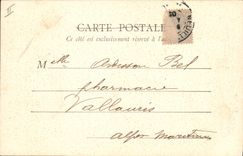 CARTE POSTALE
Ce côté est exclusivement réservé à l'a
M elle Bel
pharmacie
Vallauris
Alpes Maritimes